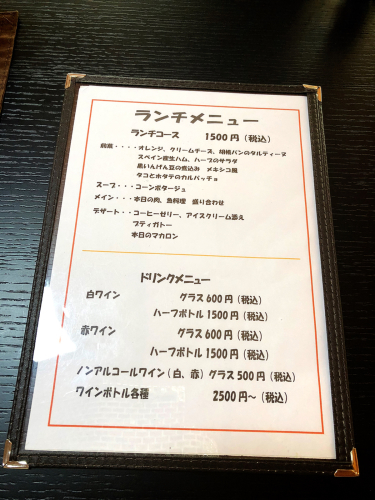 ランチメニュー
ランチコース　1500円（税込）
前菜・・・・オレンジ、クリームチーズ、胡桃パンのタルティーヌ
スペイン産生ハム、ハーブのサラダ
黒いんげん豆の煮込み　メキシコ風
タコとホタテのカルパッチョ
スープ・・・コーンポタージュ
メイン・・・本日の肉、魚料理　盛り合わせ
デザート・・・コーヒーゼリー、アイスクリーム添え
プティガトー
本日のマカロン
ドリンクメニュー
白ワイン　グラス600円（税込）
ハーフボトル1500円（税込）
赤ワイン　グラス600円（税込）
ハーフボトル1500円（税込）
ノンアルコールワイン（白、赤）グラス500円（税込）
ワインボトル各種　2500円～（税込）